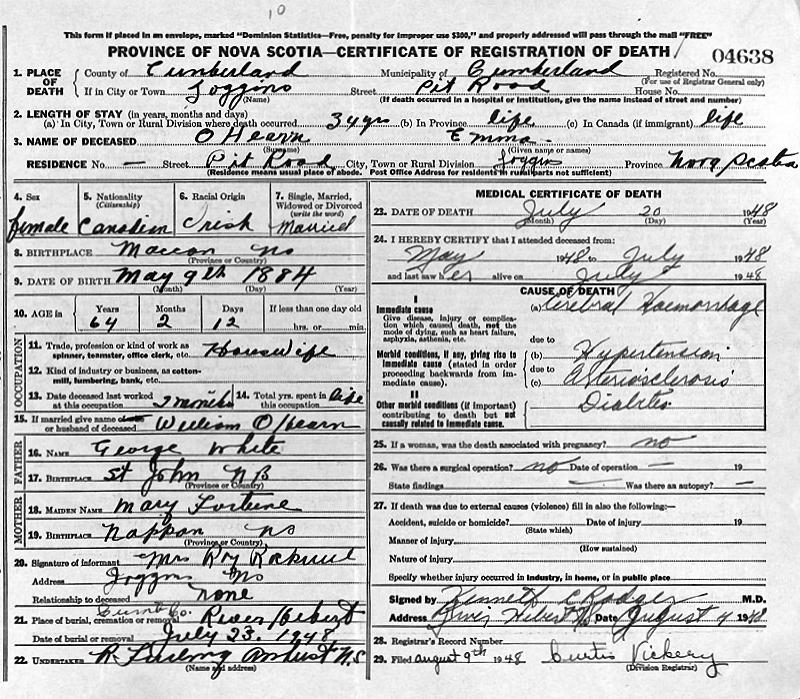 10
This form if placed in an envelope, marked "Dominion Statistics—Free, penalty for improper use $300," and properly addressed will pass through the mail "FREE"
PROVINCE OF NOVA SCOTIA—CERTIFICATE OF REGISTRATION OF DEATH 04638
1. PLACE OF DEATH County of Cumberland Municipality of Cumberland Registered No. (For use of Registrar General only)
If in City or Town Joggins (Name) Street Pit Road House No.
(If death occurred in a hospital or institution, give the name instead of street and number)
2. LENGTH OF STAY (in years, months and days)
(a) In City, Town or Rural Division where death occurred 34 yrs (b) In Province life (c) In Canada (if immigrant) life
3. NAME OF DECEASED O Hearn (Surname) Emma (Given name or names)
RESIDENCE No. — Street Pit Road City, Town or Rural Division Joggins Province Nova Scotia
(Residence means usual place of abode. Post Office Address for residents in rural parts not sufficient)
4. Sex female
5. Nationality (Citizenship) Canadian
6. Racial Origin Irish
7. Single, Married, Widowed or Divorced (write the word) Married
8. BIRTHPLACE Maccan NS (Province or Country)
9. DATE OF BIRTH May 9th 1884 (Month) (Day) (Year)
10. AGE in Years 64 Months 2 Days 12 If less than one day old hrs. or min.
OCCUPATION
11. Trade, profession or kind of work as spinner, teamster, office clerk, etc. Housewife
12. Kind of industry or business, as cotton-mill, lumbering, bank, etc.
13. Date deceased last worked at this occupation 2 months 14. Total yrs. spent in this occupation life
15. If married give name of husband or husband of deceased William O Hearn
FATHER
16. Name George White
17. Birthplace St John N B (Province or Country)
MOTHER
18. Maiden Name Mary Fortune
19. Birthplace Nappan NS (Province or Country)
20. Signature of informant Mrs Roy
Address Joggins NS
Relationship to deceased none
Cumb Co.
21. Place of burial, cremation or removal River Hebert
Date of burial or removal July 23. 1948
22. UNDERTAKER R Amherst N.S (Name and address)
MEDICAL CERTIFICATE OF DEATH
23. DATE OF DEATH July 20 1948 (Month) (Day) (Year)
24. I HEREBY CERTIFY that I attended deceased from:
May 1948 to July 1948
and last saw her alive on July 1948
CAUSE OF DEATH
I
Immediate cause
Give disease, injury or complication which caused death, not the mode of dying, such as heart failure, asphyxia, asthenia, etc.
(a) Cerebral Haemorrhage
due to
Morbid conditions, if any, giving rise to immediate cause (stated in order proceeding backwards from immediate cause).
(b) Hypertension
due to
(c) Arteriosclerosis
II
Other morbid conditions (if important) contributing to death but not causally related to immediate cause.
Diabetes
25. If a woman, was the death associated with pregnancy? no
26. Was there a surgical operation? no Date of operation — 19
State findings — Was there an autopsy? —
27. If death was due to external causes (violence) fill in also the following:—
Accident, suicide or homicide? (State which) Date of injury 19
Manner of injury (How sustained)
Nature of injury
Specify whether injury occurred in industry, in home, or in public place
Signed by Kenneth C Rodger M.D.
Address River Hebert NS Date August 4 1948
28. Registrar's Record Number
29. Filed august 9th 1948 Curtis Vickery (Division Registrar)